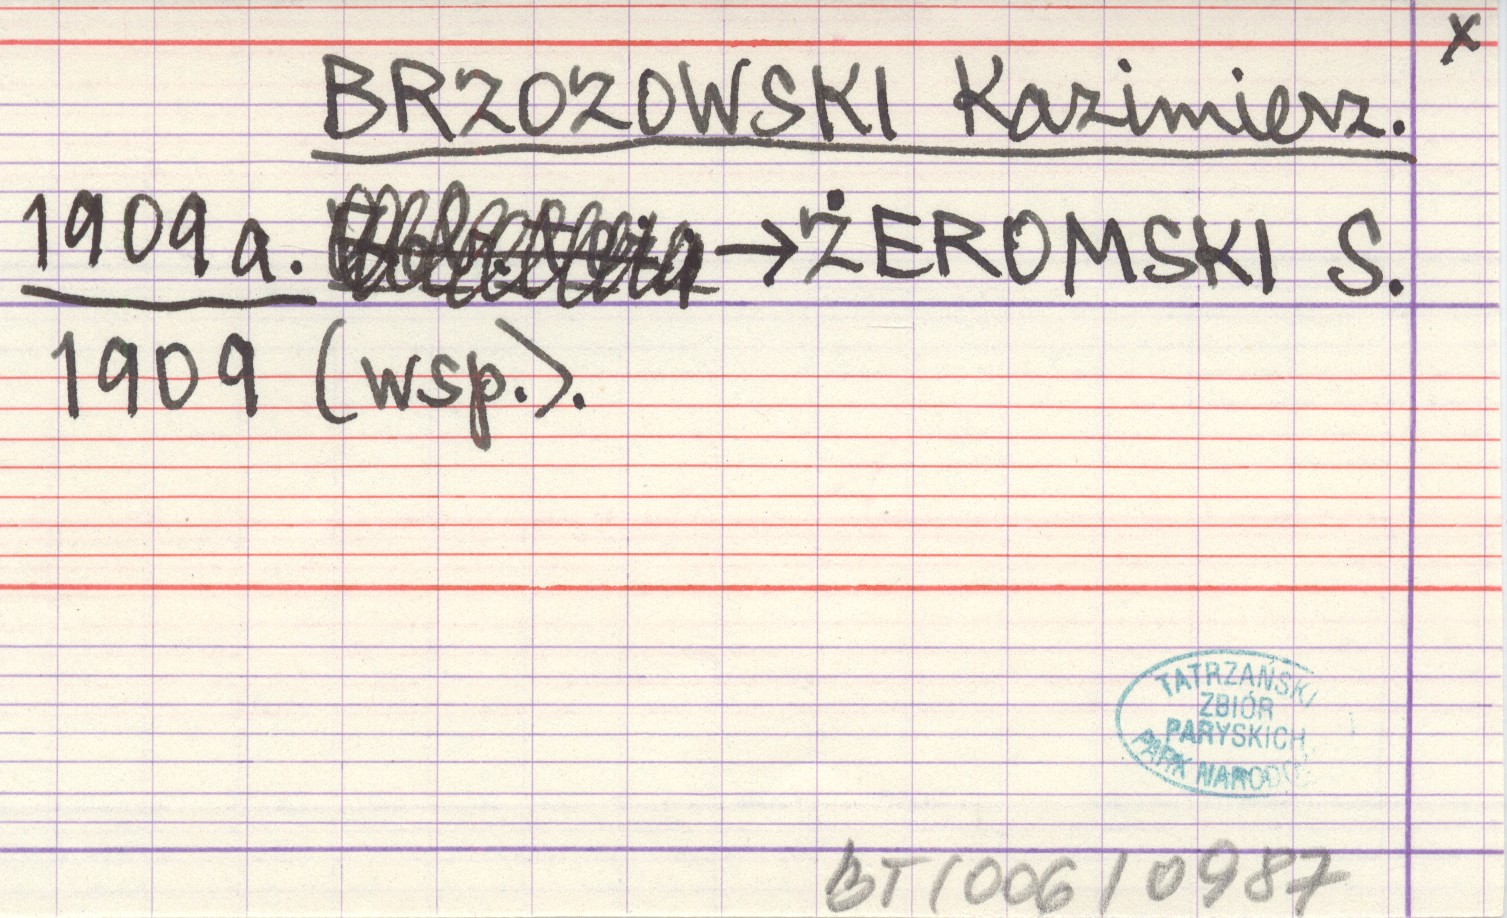 x
BRZOZOWSKI Kazimierz.
1909a. → ŻEROMSKI S.
1909 (wsp.).
TATRZAŃSKI
ZBIÓR
PARYSKICH
PARK NARODO
BT/006/0987